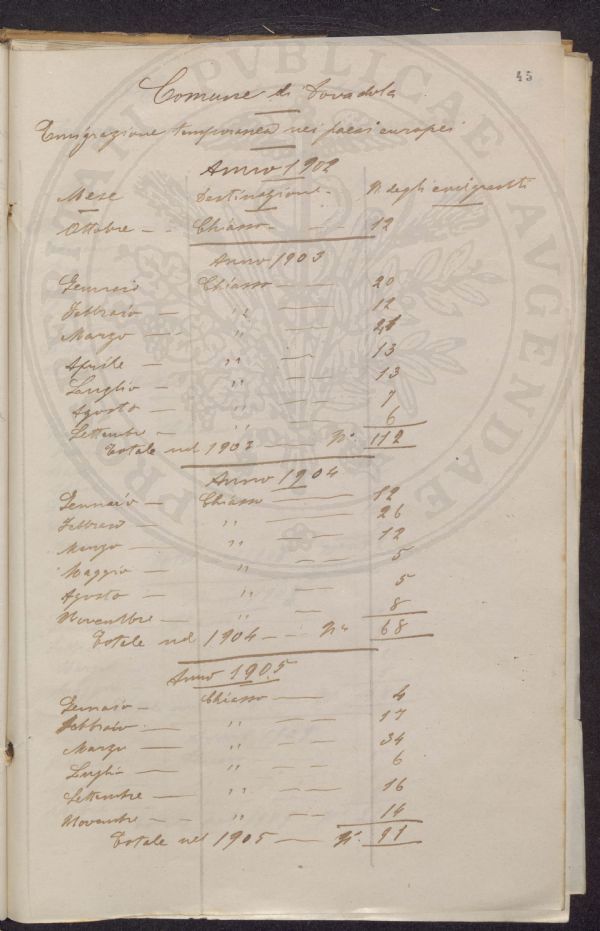 45
Comune di Dovadola
Emigrazione temporanea nei paesi europei
Anno 1902
Mese Destinazione N. degli emigranti
Ottobre Chiasso 12
Anno 1903
Gennaio Chiasso 20
Febbraio " 12
Marzo "
Aprile " 13
Luglio " 13
Agosto " 7
Settembre " 6
Totale nel 1903 N. 112
Anno 1904
Gennaio Chiasso 12
Febbraio " 26
Marzo " 12
Maggio " 5
Agosto " 5
Novembre " 8
Totale nel 1904 N. 68
Anno 1905
Gennaio Chiasso 4
Febbraio " 17
Marzo " 34
Luglio " 6
Settembre " 16
Novembre " 14
Totale nel 1905 N. 91
PVBLICAE
AVGENDAE